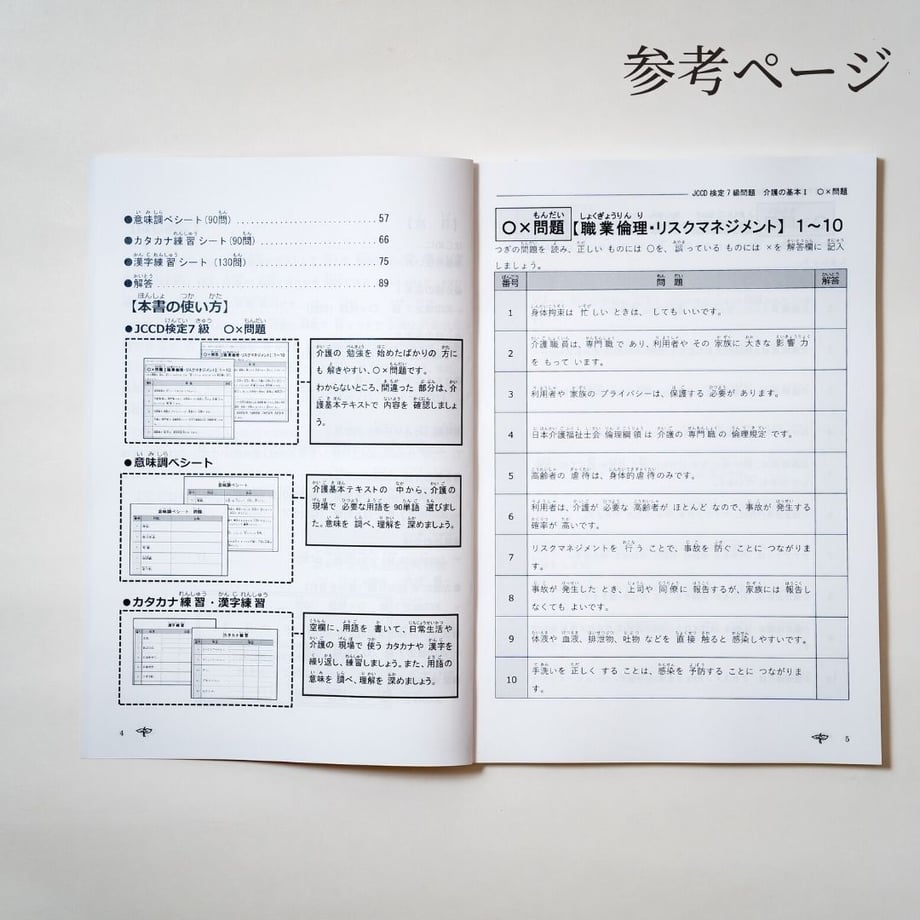 参考ページ
●意味調べシート(90問) 57
●カタカナ練習シート(90問) 66
●漢字練習シート(130問) 75
●解答 89
【本書の使い方】
●JCCD検定7級 〇×問題
介護の 勉強を 始めたばかりの 方に
も 解きやすい、〇×問題です。
わからないところ、間違った 部分は、介
護基本テキストで 内容を 確認しましょ
う。
●意味調べシート
介護基本テキストの 中から、介護の
現場で 必要な用語を 90単語 選びまし
た。意味を 調べ、理解を 深めましょう。
●カタカナ練習・漢字練習
空欄に、用語を 書いて、日常生活や
介護の 現場で 使う カタカナや 漢字を
繰り返し、練習しましょう。また、用語の
意味を 調べ、理解を 深めましょう。
4
JCCD検定7級問題 介護の基本Ⅰ 〇×問題
〇×問題【職業倫理・リスクマネジメント】 1~10
つぎの問題を 読み、正しい ものには 〇を、誤っている ものには ×を 解答欄に 記入
しましょう。
番号 問題 解答
1 身体拘束は 忙しい ときは、しても いいです。
2 介護職員は、専門職で あり、利用者や その 家族に 大きな 影響力
を もって います。
3 利用者や 家族の プライバシーは、保護する 必要が あります。
4 日本介護福祉士会 倫理綱領は 介護の 専門職の 倫理規定 です。
5 高齢者の 虐待は、身体的虐待のみです。
6 利用者は、介護が 必要な 高齢者が ほとんど なので、事故が 発生する
確率が 高いです。
7 リスクマネジメントを 行う ことで、事故を 防ぐ ことに つながりま
す。
8 事故が 発生した とき、上司や 同僚に 報告するが、家族には 報告し
なくても よいです。
9 体液や 血液、排泄物、吐物 などを 直接 触ると 感染しやすいです。
10 手洗いを 正しく する ことは、感染を 予防する ことに つながりま
す。
5